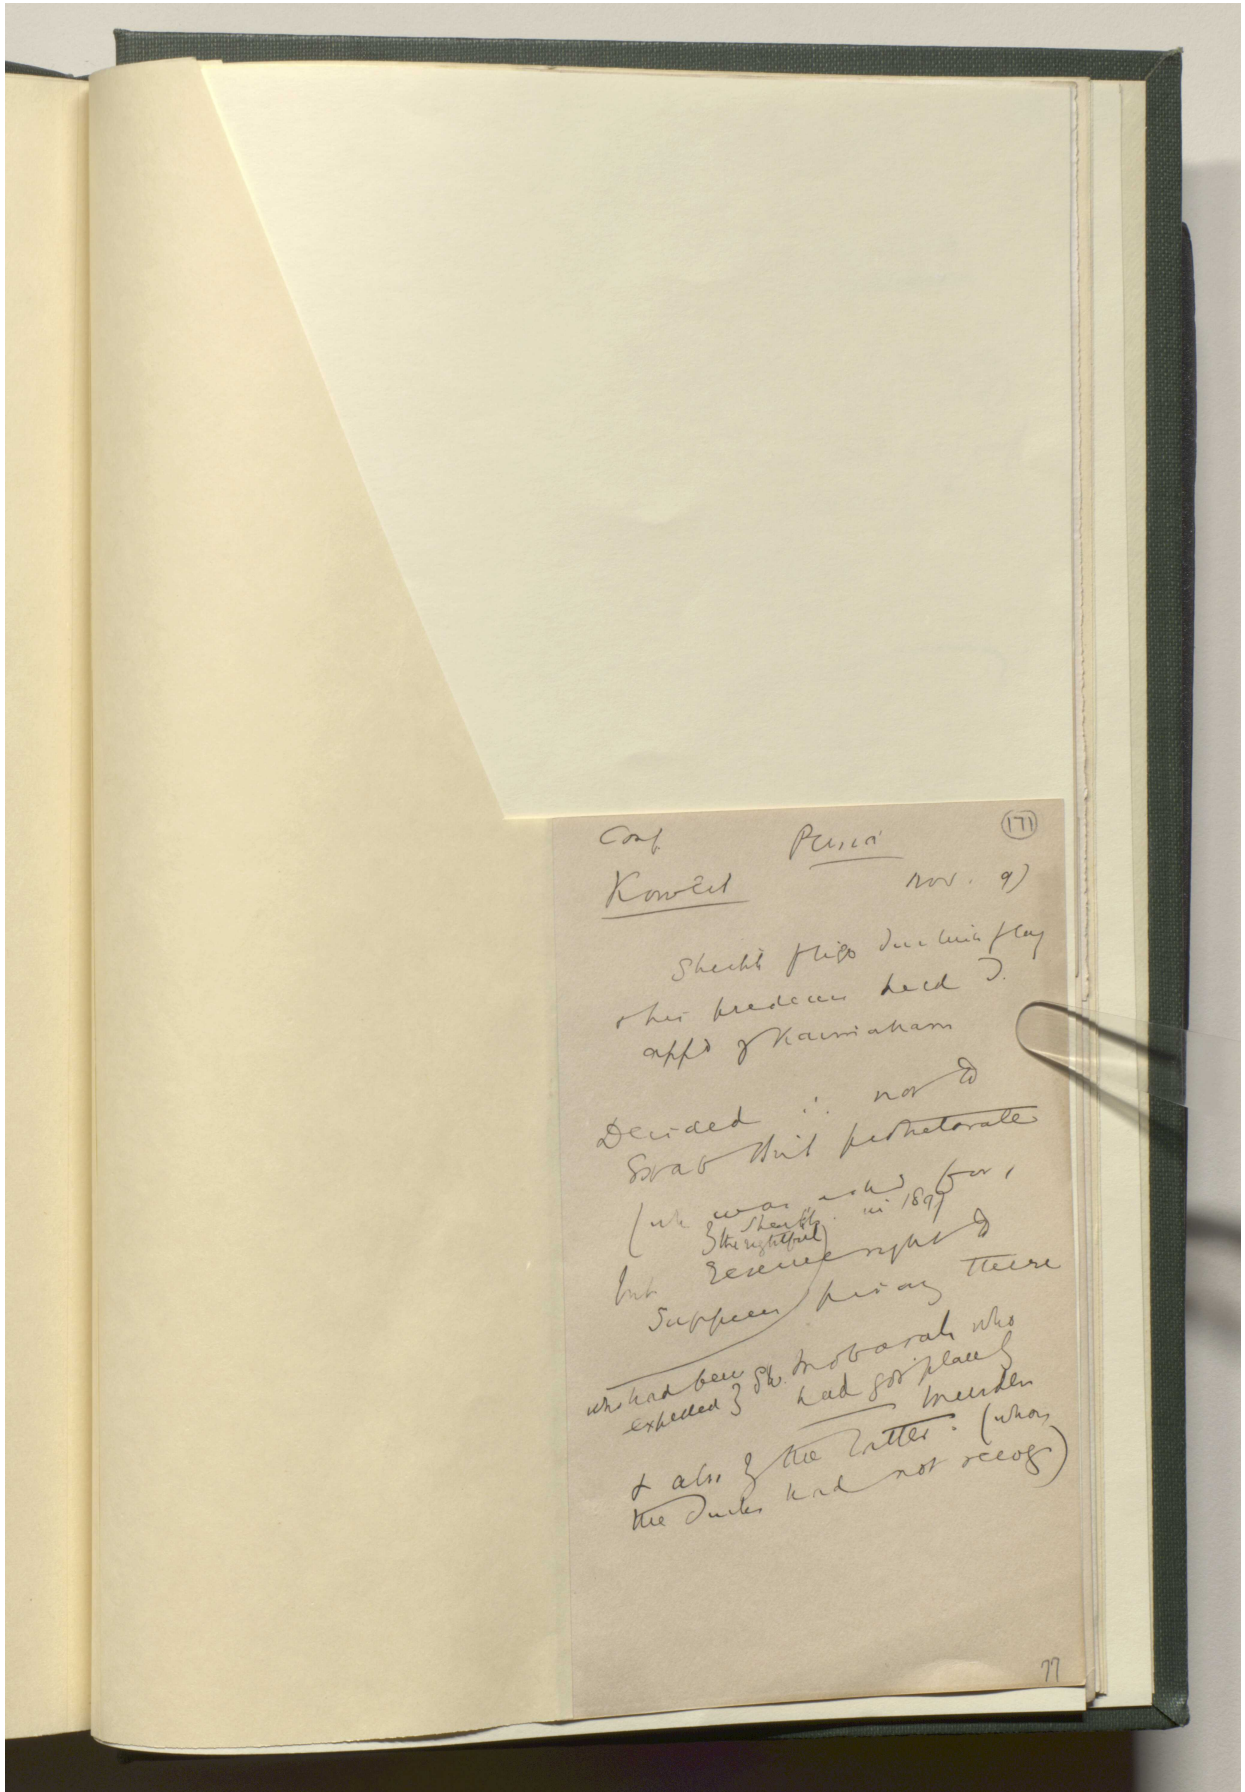 Conf Persia 171
Koweit Nov. 97
Sheikh flies Turkish flag
& his held T.
app't of Kaimakam
Decided ∴ not to
grant Brit protectorate
(wh was asked for,
by Sheikh in 1897
(by the rightful)
but reserve right to
suppress piracy there
who had been
expelled by Sh. Mobarak who
had got place by
murder
& also by the latter. (whom
the Turks had not recog)
77